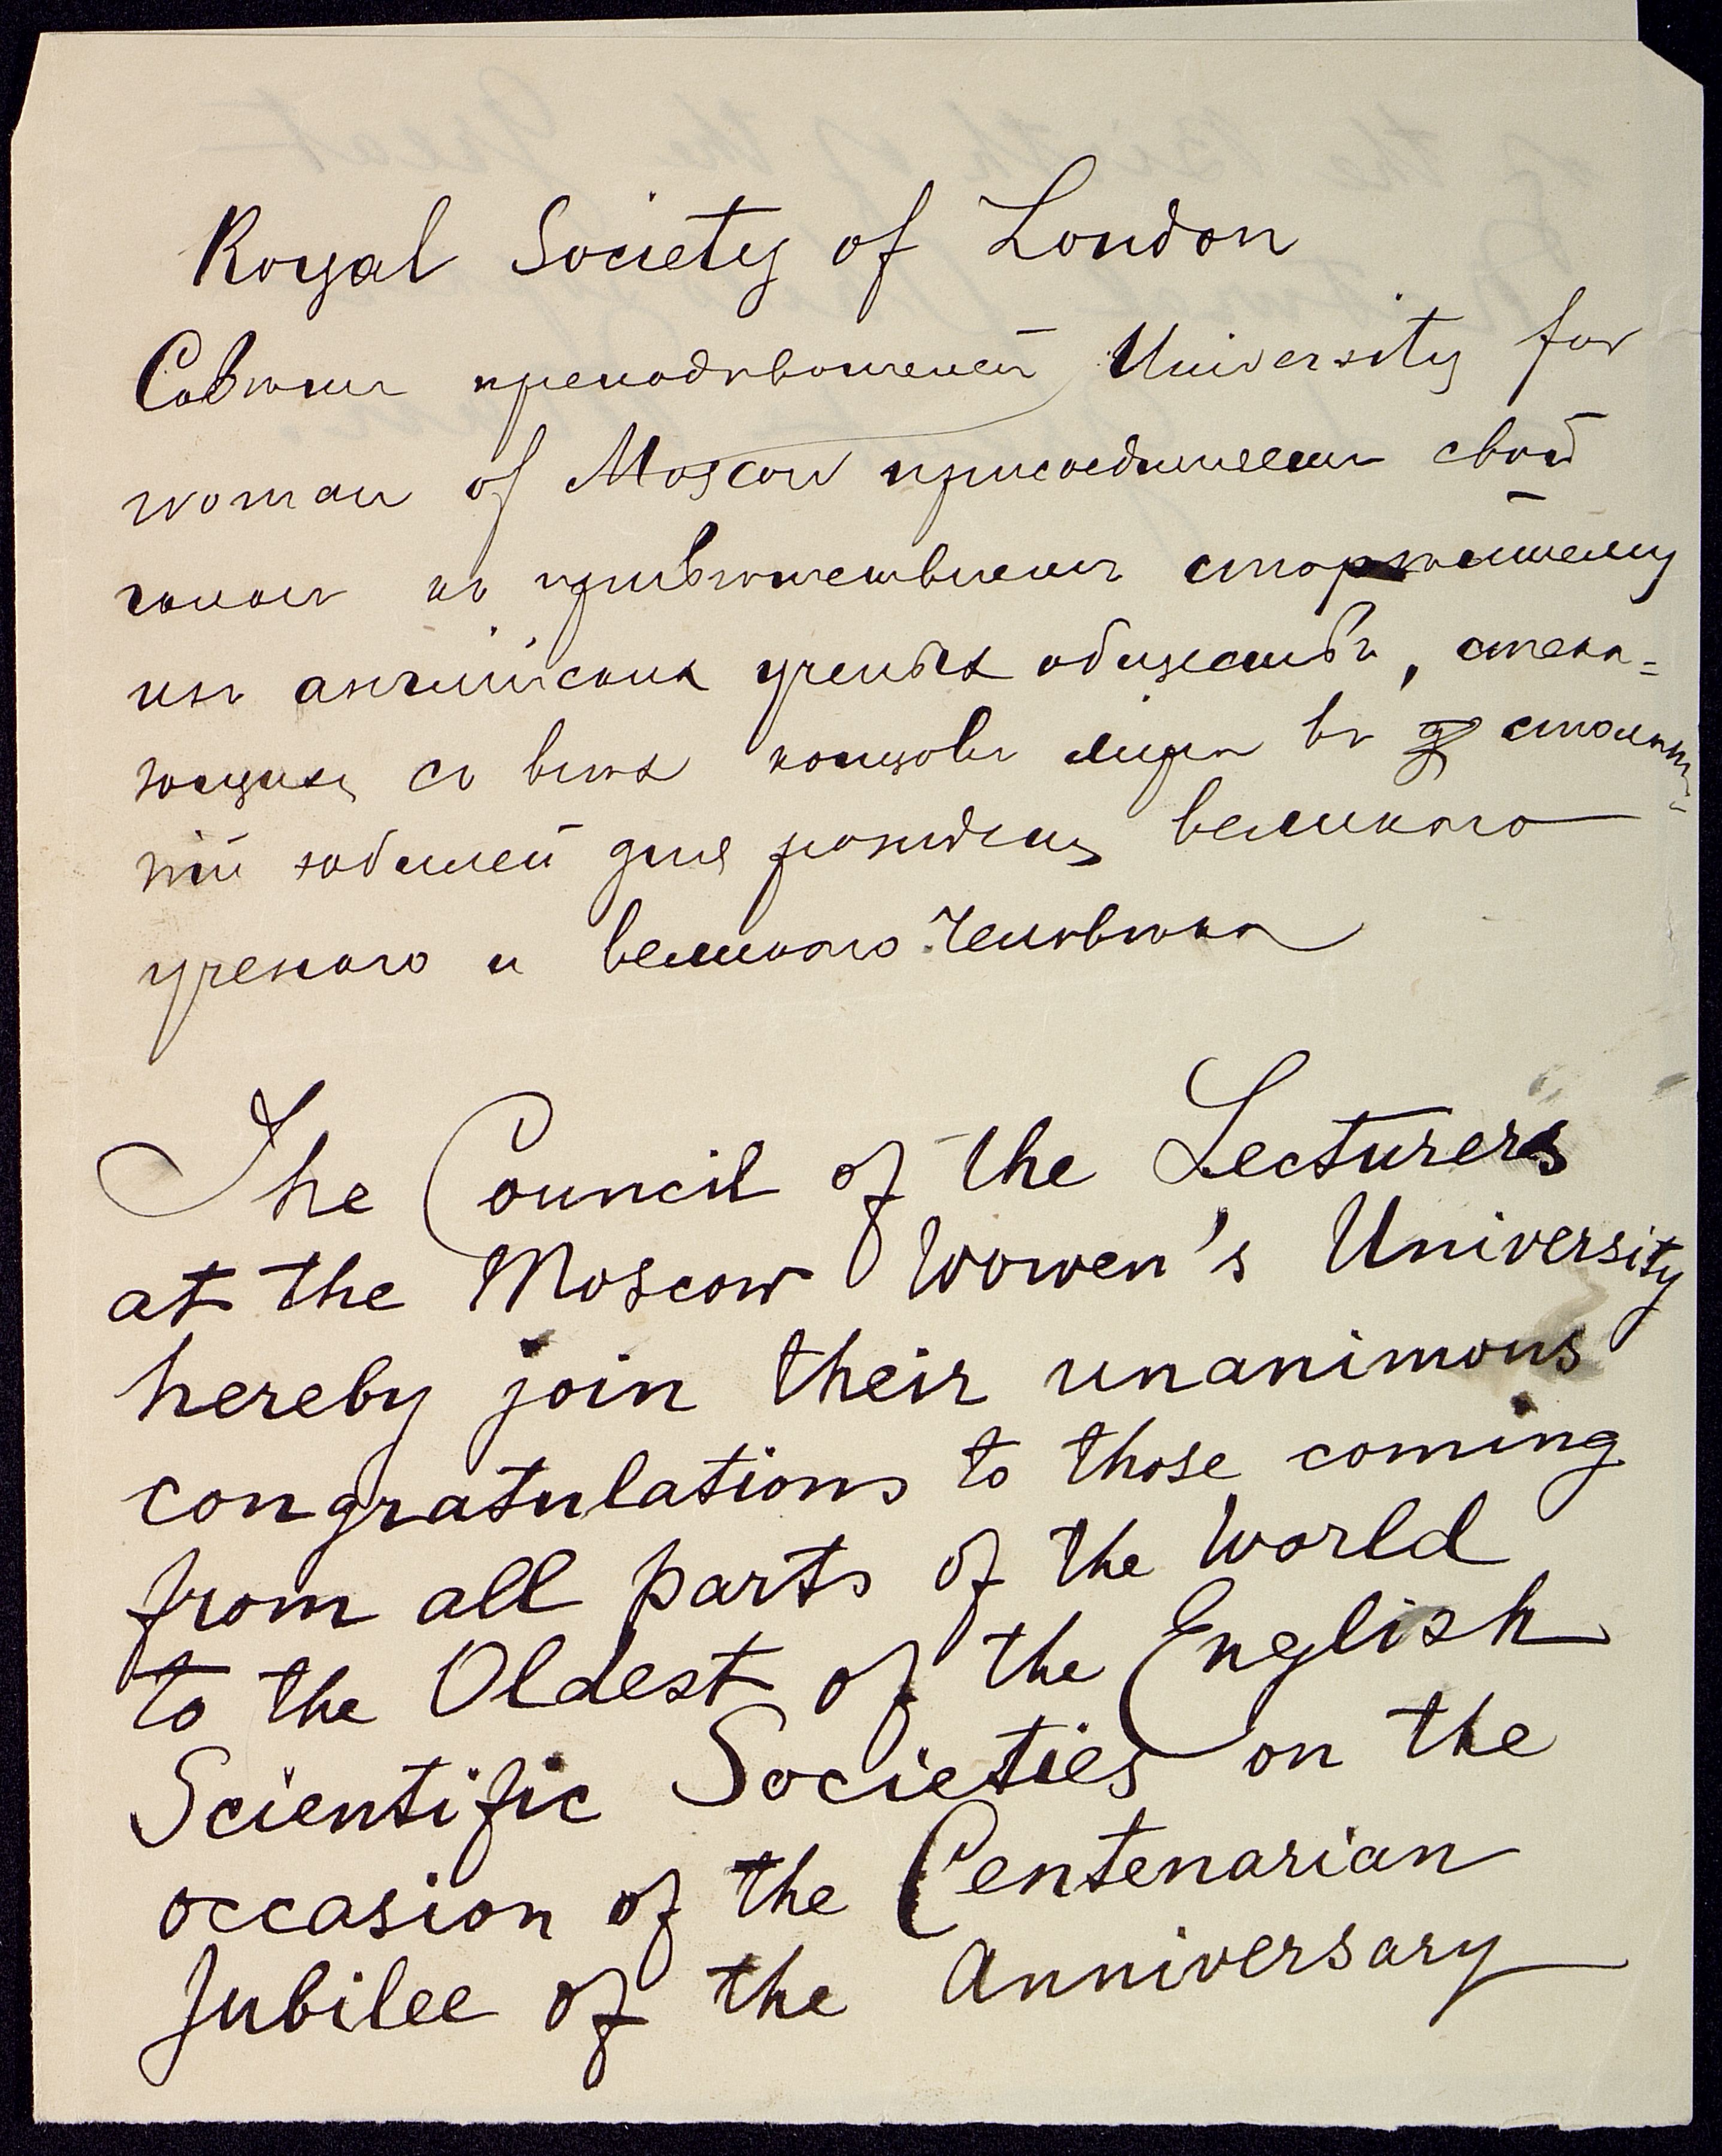 Royal Society of London
Совѣтъ преподавателей University for
woman of Moscow присоединяетъ свой
голосъ къ привѣтствіямъ старѣйшему
изъ англійскихъ ученыхъ обществъ, стека=
ющихся со всѣхъ концовъ міра въ столѣт=
ній юбилей дня рожденія великаго
ученаго и великаго Человѣка
The Council of the Lecturers
at the Moscow Women's University
hereby join their unanimous
congratulations to those coming
from all parts of the World
to the Oldest of the English
Scientific Societies on the
occasion of the Centenarian
Jubilee of the Anniversary